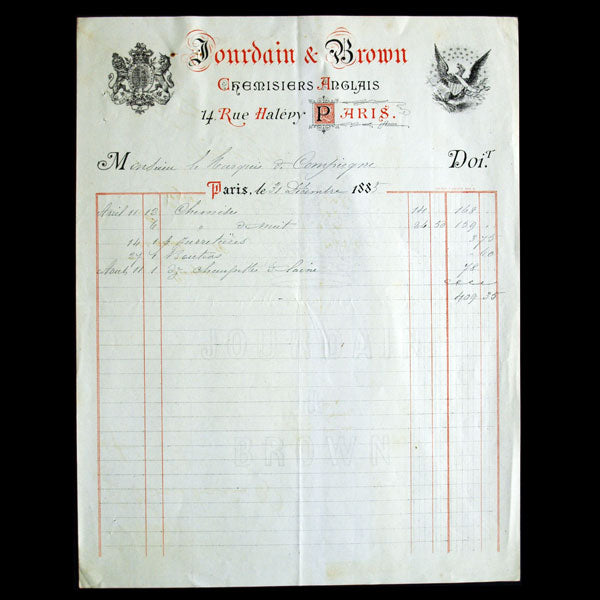 Jourdain & Brown
Chemisiers Anglais
14 Rue Halévy Paris.
Monsieur le Marquis de Compiegne Doit
Paris, le 31 Décembre 1885
Avril 11 12 Chemises 14 168 .
6 " de nuit 159 .
14 1 jarretières 3 75
27 1
Août 11 1 Chaussettes de laine 78 .
409 35
JOURDAIN
&
BROWN